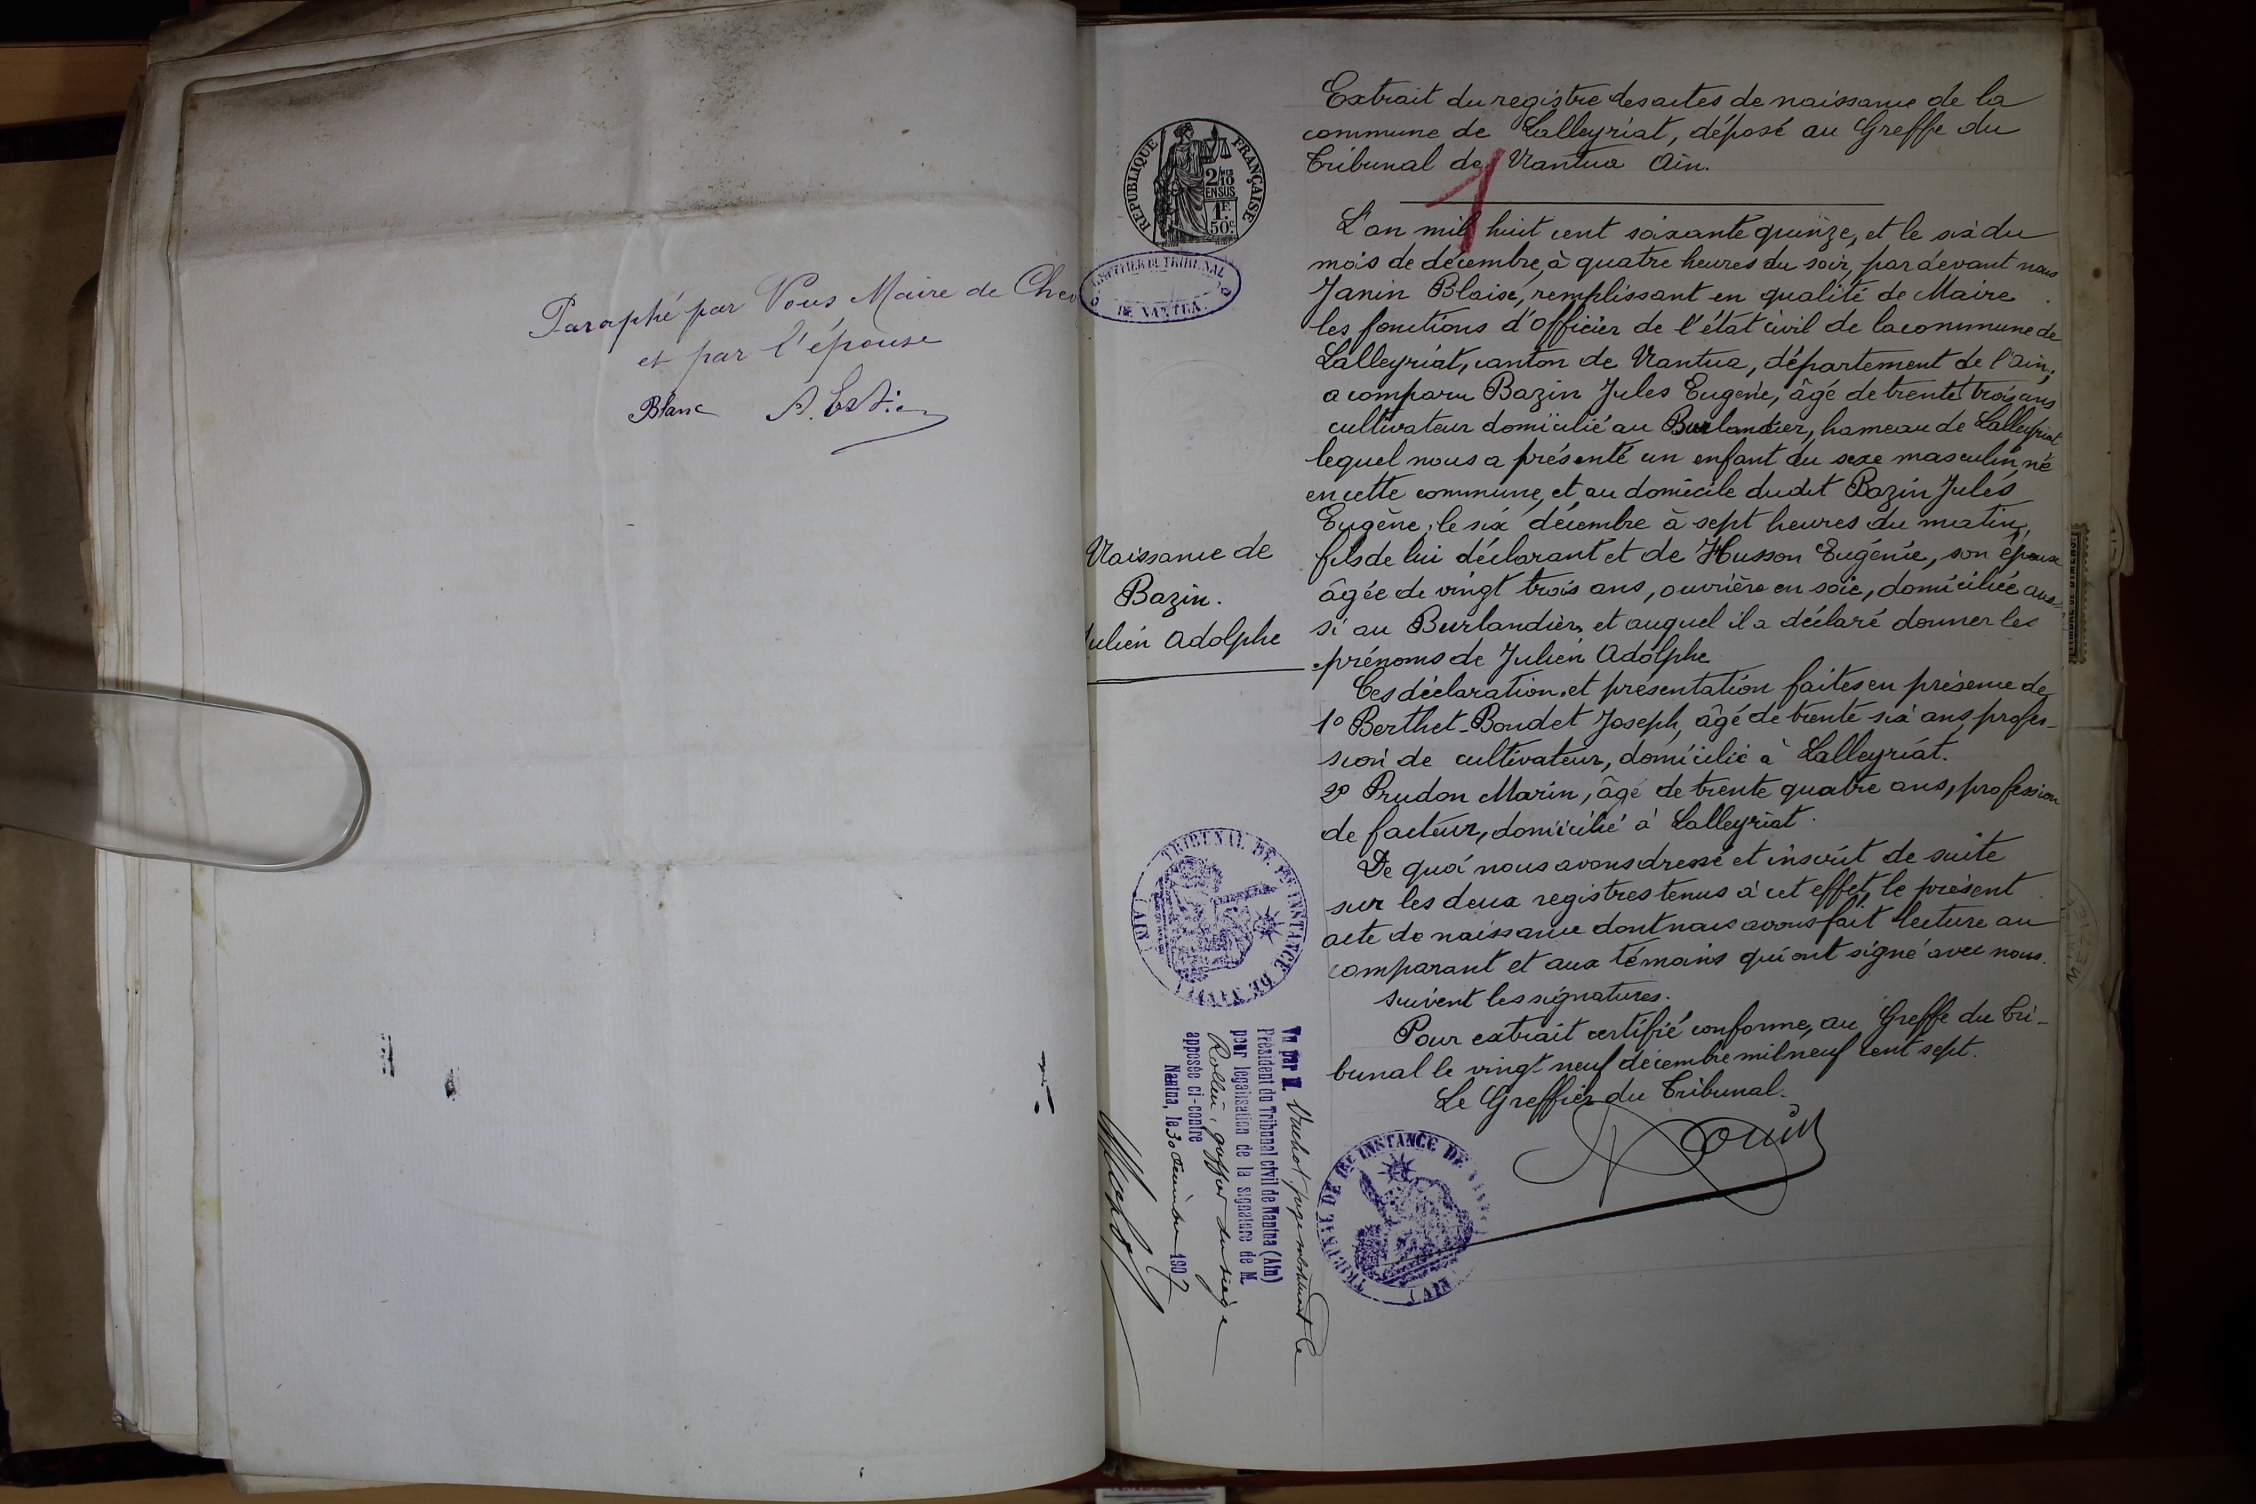 Paraphé par Nous Maire de Che
et par l'épouse
Blanc A. Estie
REPUBLIQUE FRANÇAISE
2/10
EN SUS
1F.
50c
DU TRIBUNAL
DE NANTUA
Extrait du registre des actes de naissance de la
commune de Lalleyriat, déposé au Greffe du
Tribunal de Nantua Ain.
1
L'an mil huit cent soixante quinze, et le six du
mois de décembre, à quatre heures du soir, par devant nous
Janin Blaise, remplissant en qualité de Maire
les fonctions d'Officier de l'état civil de la commune de
Lalleyriat, canton de Nantua, département de l'Ain,
a comparu Bazin Jules Eugène, âgé de trente trois ans
cultivateur domicilié au Burlandier, hameau de Lalleyriat
lequel nous a présenté un enfant du sexe masculin, né
en cette commune, et au domicile dudit Bazin Jules
Eugène, le six décembre à sept heures du matin,
fils de lui déclarant et de Husson Eugénie, son épouse
âgée de vingt trois ans, ouvrière en soie, domiciliée aus-
si au Burlandier, et auquel il a déclaré donner les
prénoms de Julien Adolphe
Naissance de
Bazin.
ulien Adolphe
Ces déclaration et présentation faites en présence de
1° Berthet-Bondet Joseph, âgé de trente six ans, profes-
sion de cultivateur, domicilié à Lalleyriat.
2° Prudon Marin, âgé de trente quatre ans, profession
de facteur, domicilié à Lalleyriat.
De quoi nous avons dressé et inscrit de suite
sur les deux registres tenus à cet effet, le présent
acte de naissance dont nous avons fait lecture au
comparant et aux témoins qui ont signé avec nous.
suivent les signatures.
Pour extrait certifié conforme, au Greffe du Tri-
bunal le vingt neuf décembre mil neuf cent sept.
Le Greffier du Tribunal.
TRIBUNAL DE 1RE INSTANCE DE
(AIN)
Vu par M. Vuchot juge
Président du Tribunal civil de Nantua (Ain)
pour légalisation de la signature de M.
greffier du siège
apposée ci-contre
Nantua, le 30 décembre 1907
TRIBUNAL DE 1RE INSTANCE DE
(AIN)